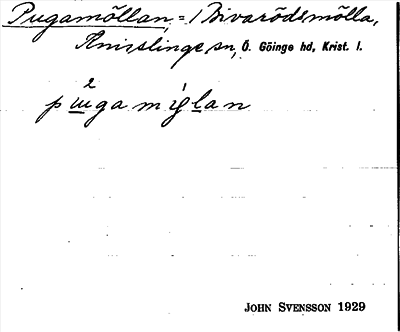 Pugamöllan, = / Bivarödsmölla,
Knislinge sn, Ö. Göinge hd, Krist. l.
2
JOHN SVENSSON 1929